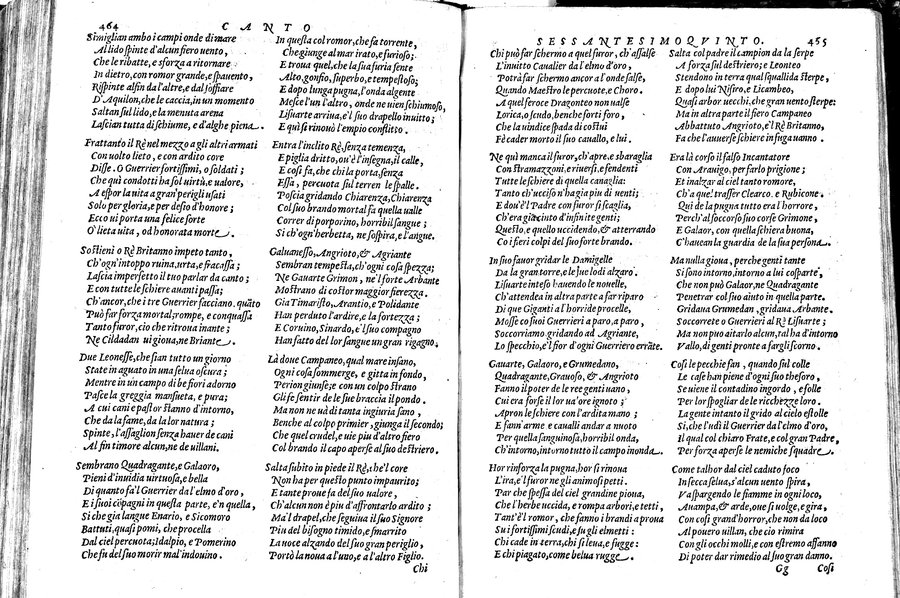 464 CANTO
Simiglian ambo i campi onde di mare
Al lido spinte d'alcun fiero uento,
Che le ribatte, e sforza a ritornare
In dietro, con romor grande, e spauento,
Rispinte al fin da l'altre, e dal soffiare
D'Aquilon, che le caccia, in un momento
Saltan sul lido, e la menuta arena
Lascian tutta di schiume, e d'alghe piena.
Frattanto il Rè nel mezzo a gli altri armati
Con uolto lieto, e con ardito core
Disse. O Guerrier fortissimi, o soldati;
Che quì condotti ha sol uirtù, e ualore,
A espor la uita a gran perigli usati
Solo per gloria, e per desio d'honore;
Ecco ui porta una felice sorte
O lieta uita, od honorata morte.
Sostieni o Rè Britanno impeto tanto,
Ch'ogn'intoppo ruina, urta, e fracassa;
Lascia imperfetto il tuo parlar da canto;
E con tutte le schiere auanti passa;
Ch'ancor, che i tre Guerrier facciano. quãto
Può far forza mortal; rompe, e conquassa
Tanto furor, cio che ritroua inante;
Ne Cildadan ui gioua, ne Briante.
Due Leonesse, che sian tutto un giorno
State in aguato in una selua oscura;
Mentre in un campo di bei fiori adorno
Pasce la greggia mansueta, e pura;
A cui cani e pastor stanno d'intorno,
Che da la fame, da la lor natura;
Spinte, l'assaglion senza hauer de cani
Al fin timore alcun, ne de uillani.
Sembrano Quadragante, e Galaoro,
Pieni d'inuidia uirtuosa, e bella
Di quanto fa'l Guerrier da l'elmo d'oro,
E i suoi cõpagni in questa parte, e'n quella,
Si che gia langue Enario, e Sicomoro
Battuti, quasi pomi, che procella
Dal ciel percuota; Idalpio, e Pomerino
Che fu del suo morir mal'indouino.
In questa col romor, che fa torrente,
Che giunge al mar irato, e furioso;
E troua quel, che la sua furia sente
Alto, gonfio, superbo, e tempestoso;
E dopo lunga pugna, l'onda algente
Mesce l'un l'altro, onde ne uien schiumoso,
Lisuarte arriua, e'l suo drapello inuitto;
E quì si rinouò l'empio conflitto.
Entra l'inclito Rè, senza temenza,
E piglia dritto, ou'è l'insegna, il calle,
E così fa, che chi la porta, senza
Essa, percuota sul terren le spalle.
Poscia gridando Chiarenza, Chiarenza
Col suo brando mortal fa quella ualle
Correr di porporino, horribil sangue;
Si ch'ogn'herbetta, ne sospira, e l'angue.
Galuanesso, Angrioto, & Agriante
Sembran tempesta, ch'ogni cosa spezza;
Ne Gauarte Grimon, ne'l forte Arbante
Mostrano di costor maggior fierezza.
Gia Timaristo, Arantio, e Polidante
Han perduto l'ardire, e la fortezza;
E Coruino, Sinardo, e'l suo compagno
Han fatto del lor sangue un gran rigagno.
Là doue Campaneo, qual mare insano,
Ogni cosa sommerge, e gitta in fondo,
Perion giunse; e con un colpo strano
Gli fè sentir de le sue braccia il pondo.
Ma non ne uà di tanta ingiuria sano,
Benche al colpo primier, giunga il secondo;
Che quel crudel, e uie piu d'altro fiero
Col brando il capo aperse al suo destriero.
Salta subito in piede il Rè, che'l core
Non ha per questo punto impaurito;
E tante proue fa del suo ualor,
Ch'alcun non è piu d'affrontarlo ardito;
Ma'l drapel, che seguiua il suo Signore
Piu del bisogno timido, e smarrito
La uoce alzando del suo gran periglio,
Portò la noua a l'uno, e a l'altro Figlio.
Chi
SESSANTESIMOQVINTO. 465
Chi può far schermo a quel furor, ch'assalse
L'inuitto Caualier da l'elmo d'oro,
Potrà far schermo ancor a l'onde salse,
Quando Maestro le percuote, e Choro.
A quel feroce Dragonteo non ualse
Lorica, o scudo, benche forti foro,
Che la uindice spada di costui
Fè cader morto il suo cauallo, e lui.
Ne quì manca il furor, ch'apre, e sbaraglia
Con stramazzoni, e riuersi, e fendenti
Tutte le schiere di quella canaglia:
Tanto ch'ucciso n'hagia piu di uenti;
E dou'è'l Padre con furor si scaglia,
Ch'era già cinto d'infinite genti;
Questo, e quello uccidendo, & atterrando
Co i fieri colpi del suo forte brando.
In suo fauor gridar le Damigelle
Da la gran torre, e le sue lodi alzaro.
Lisuarte inteso hauendo le nouelle,
Ch'attendea in altra parte a far riparo
Di que Giganti a l'horride procelle,
Mosse co suoi Guerrieri a paro, a paro,
Soccorriamo gridando ad Agriante,
Lo specchio, e'l fior d'ogni Guerriero errãte.
Gauarte, Galaoro, e Grumedano,
Quadragante, Grauoso, & Angrioto
Fanno il poter de le ree genti uano,
Cui era forse il lor ualore ignoto;
Apron le schiere con l'ardita mano;
E fann'arme e caualli andar a nuoto
Per quella sanguinosa, horribil onda,
Ch'intorno, intorno tutto il campo inonda.
Hor rinforza la pugna, hor si rinoua
L'ira, e'l furor ne gli animosi petti.
Par che spessa del ciel grandine pioua,
Che l'herbe uccida, e rompa arbori, e tetti,
Tant'è'l romor, che fanno i brandi a proua
Su i fortissimi scudi, e su gli elmetti:
Chi cade in terra, chi si leua, e fugge:
E chi piagato, come belua rugge.
Salta col padre il campion da la serpe
A forza sul destriero; e Leonteo
Stendono in terra qual squallida sterpe,
E dopo lui Nisiro, e Licambeo,
Quasi arbor uecchi, che gran uento sterpe:
Ma in altra parte il fiero Campaneo
Abbattuto Angrioto, e'l Rè Britanno,
Fa che l'auuerse schiere in fuga uanno.
Era là corso il falso Incantatore
Con Arauigo, per farlo prigione;
Et inalzar al ciel tanto romore,
Ch'a que! trasser Clearco. e Rubicone.
Qui de la pugna tutto era l'horrore,
Perch'al soccorso suo corse Grimone,
E Galaor, con quella schiera buona,
C'hauean la guardia de la sua persona.
Ma nulla gioua, perche genti tante
Si sono intorno, intorno a lui cosparte,
Che non può Galaor, ne Quadragante
Penetrar col suo aiuto in quella parte.
Gridaua Grumedan, gridaua Arbante.
Soccorrete o Guerrieri al Rè Lisuarte;
Ma non puo aitarlo alcun, ch'al torno
Vallo, di genti pronte a fargli scorno.
Così le pecchie fan, quando sul colle
Le case han piene d'ogni suo thesoro,
Se uiene il contadino ingordo, e folle
Per lor spogliar de le ricchezze loro.
La gente intanto il grido al cielo estolle
Sì, che l'udì il Guerrier da l'elmo d'oro,
Il qual col chiaro Frate, e col gran Padre,
Per forza aperse le nemiche squadre.
Come talhor dal ciel caduto foco
In secca selua, s'alcun uento spira,
Va spargendo le fiamme in ogni loco,
Auampa, & arde, oue si uolge, e gira,
Con così grand'horror, che non da loco
Al pouero uillan, che ciò rimira
Con gli occhi molli, e con estremo affanno
Di poter dar rimedio al suo gran danno.
Gg Così